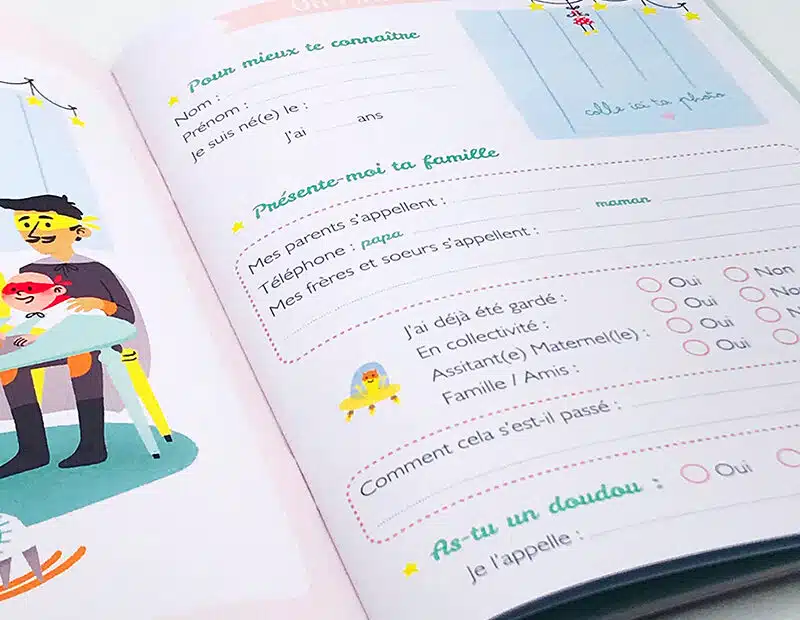 Pour mieux te connaître
Nom :
Prénom :
Je suis né(e) le :
J'ai ans
colle ici ta photo
Présente-moi ta famille
Mes parents s'appellent :
Téléphone : papa maman
Mes frères et soeurs s'appellent :
J'ai déjà été gardé : Oui Non
En collectivité : Oui
Assitant(e) Maternel(le) : Oui
Famille / Amis : Oui
Comment cela s'est-il passé :
As-tu un doudou : Oui
Je l'appelle :